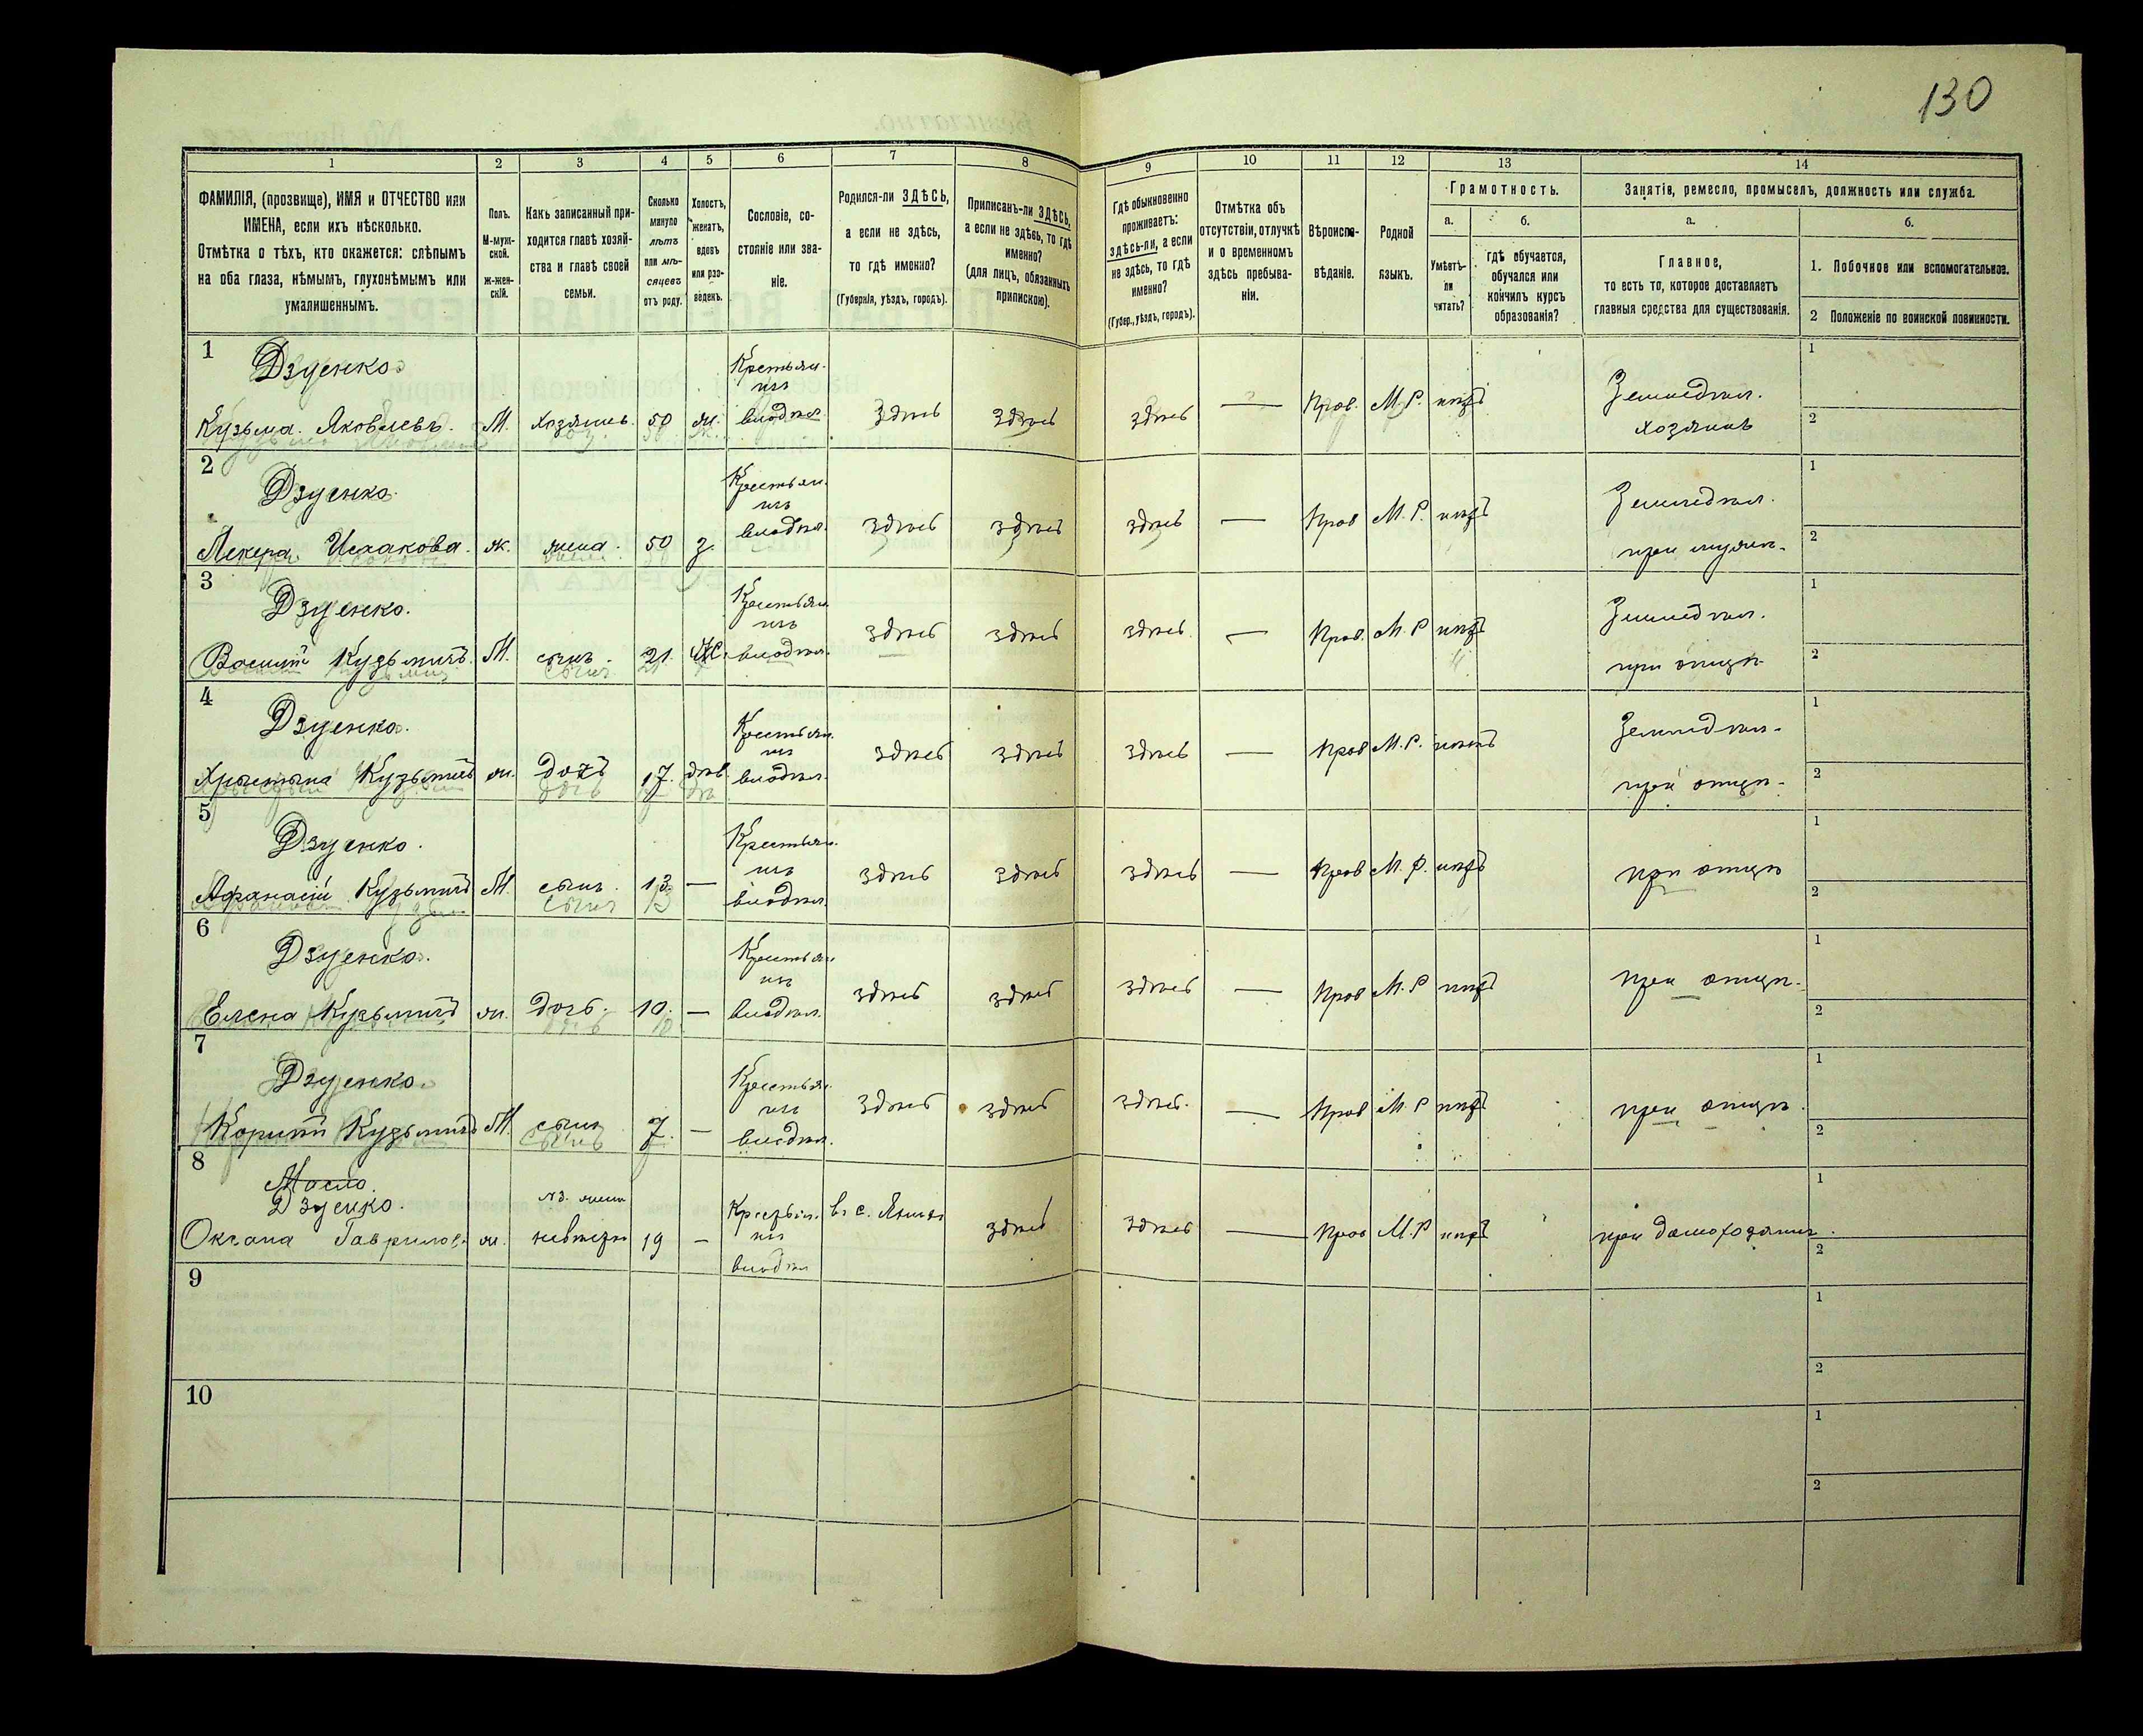 130
1 2 3 4 5 6 7 8 9 10 11 12 13 14
ФАМИЛІЯ, (прозвище), ИМЯ и ОТЧЕСТВО или
ИМЕНА, если ихъ нѣсколько.
Отмѣтка о тѣхъ, кто окажется: слѣпымъ
на оба глаза, нѣмымъ, глухонѣмымъ или
умалишеннымъ.
Полъ.
М-муж-
ской.
Ж-жен-
скій.
Какъ записанный при-
ходится главѣ хозяй-
ства и главѣ своей
семьи.
Сколько
минуло
лѣтъ
или мѣ-
сяцевъ
отъ роду.
Холостъ,
женатъ,
вдовъ
или раз-
веденъ.
Сословіе, со-
стояніе или зва-
ніе.
Родился-ли ЗДѢСЬ,
а если не здѣсь,
то гдѣ именно?
(Губернія, уѣздъ, городъ).
Приписанъ-ли ЗДѢСЬ,
а если не здѣсь, то гдѣ
именно?
(для лицъ, обязанныхъ
припискою).
Гдѣ обыкновенно
проживаетъ:
здѣсь-ли, а если
не здѣсь, то гдѣ
именно?
(Губер., уѣздъ, городъ).
Отмѣтка объ
отсутствіи, отлучкѣ
и о временномъ
здѣсь пребыва-
ніи.
Вѣроиспо-
вѣданіе.
Родной
языкъ.
Грамотность.
а.
Умѣетъ-
ли
читать?
б.
гдѣ обучается,
обучался или
кончилъ курсъ
образованія?
Занятіе, ремесло, промыселъ, должность или служба.
а.
Главное,
то есть то, которое доставляетъ
главныя средства для существованія.
б.
1. Побочное или вспомогательное.
2 Положеніе по воинской повинности.
1 Дзуенко Крестьян. 1
инъ Земледѣл.
Кузьма Яковлевъ. М. хозяинъ 50 ж. владѣл. здѣсь здѣсь здѣсь — Прав. М.Р. нѣтъ хозяинъ 2
2 Дзуенко Крестьян. 1
инъ Земледѣл.
Исакова. ж. жена 50 з. владѣл. здѣсь здѣсь здѣсь — Прав М.Р. нѣтъ при мужѣ 2
3 Дзуенко. Крестьян. 1
инъ Земледѣл.
Василій Кузьмичъ М. сынъ 21 владѣл. здѣсь здѣсь здѣсь — Прав. М.Р нѣтъ при отцѣ 2
4 Дзуенко. Крестьян. 1
инъ Земледѣл.
Кузьмичъ ж. дочь 17. дѣв. владѣл. здѣсь здѣсь здѣсь — Прав М.Р. нѣтъ при отцѣ 2
5 Дзуенко. Крестьян. 1
инъ
Афанасій Кузьмичъ М. сынъ 13 — владѣл. здѣсь здѣсь здѣсь — Прав М.Р. нѣтъ при отцѣ 2
6 Дзуенко. Крестьян. 1
инъ
Елена Кузьмичъ ж. дочь. 10. — владѣл. здѣсь здѣсь здѣсь — Прав М.Р нѣтъ при отцѣ. 2
7 Дзуенко. Крестьян. 1
инъ
Кузьмичъ М. сынъ 7. — владѣл. здѣсь здѣсь здѣсь. — Прав М.Р нѣтъ при отцѣ. 2
8 Масло. 1
Дзуенко. Крестьян. въ с.
Оксана Гаврилов. ж. невѣстка 19 — инъ здѣсь здѣсь — Прав М.Р нѣтъ при 2
владѣл
9 1
2
10 1
2